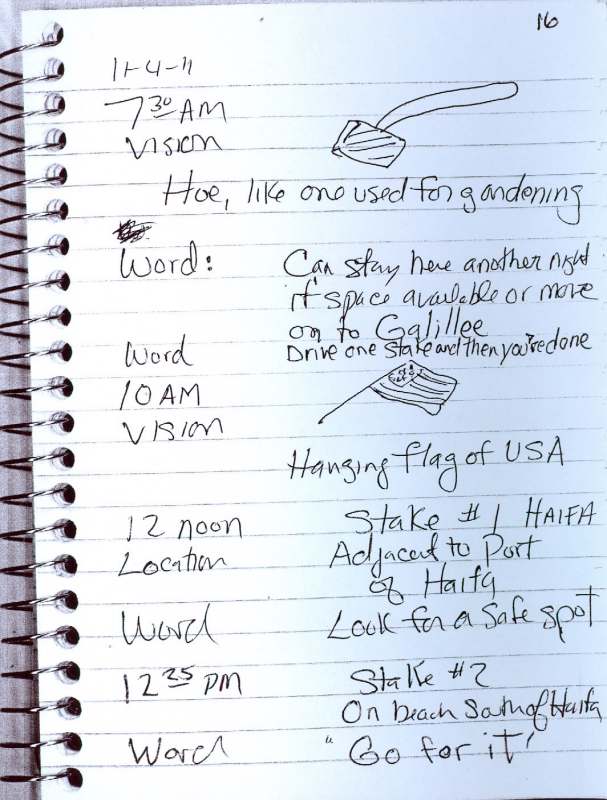 16
11-4-11
7 30 AM
Vision
Hoe, like one used for gardening
Word: Can stay here another night
if space available or move
on to Galillee
Word Drive one stake and then you're done
10 AM
Vision
Hanging flag of USA
12 noon Stake #1 HAIFA
Location Adjacent to Port
of Haifa
Word Look for a safe spot
12 25 PM Stake #2
On beach South of Haifa
Word "Go for it"